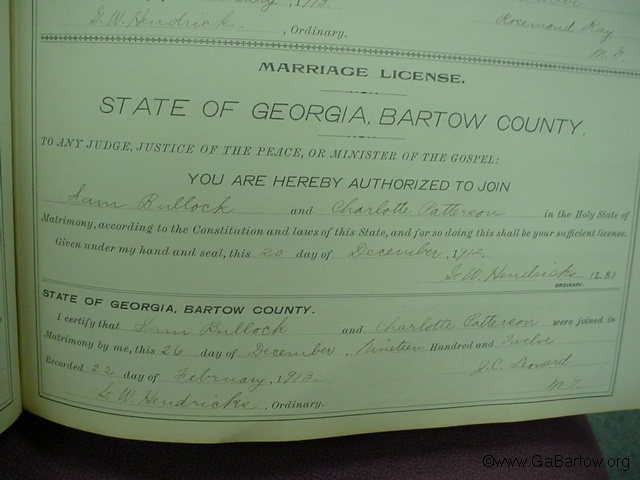 , 1913.
G. W. Hendricks , Ordinary.
Rosemond Kay
M. G.
MARRIAGE LICENSE.
STATE OF GEORGIA, BARTOW COUNTY.
TO ANY JUDGE, JUSTICE OF THE PEACE, OR MINISTER OF THE GOSPEL:
YOU ARE HEREBY AUTHORIZED TO JOIN
Sam Bullock and Charlotte Patterson in the Holy State of
Matrimony, according to the Constitution and laws of this State, and for so doing this shall be your sufficient license.
Given under my hand and seal, this 20 day of December, 1912.
G. W. Hendricks (L. S.)
ORDINARY.
STATE OF GEORGIA, BARTOW COUNTY.
I certify that Sam Bullock and Charlotte Patterson were joined in
Matrimony by me, this 26 day of December, Nineteen Hundred and Twelve
Recorded 22 day of February, 1913. J. C. Leonard
G. W. Hendricks , Ordinary. M. G.
©www.GaBartow.org